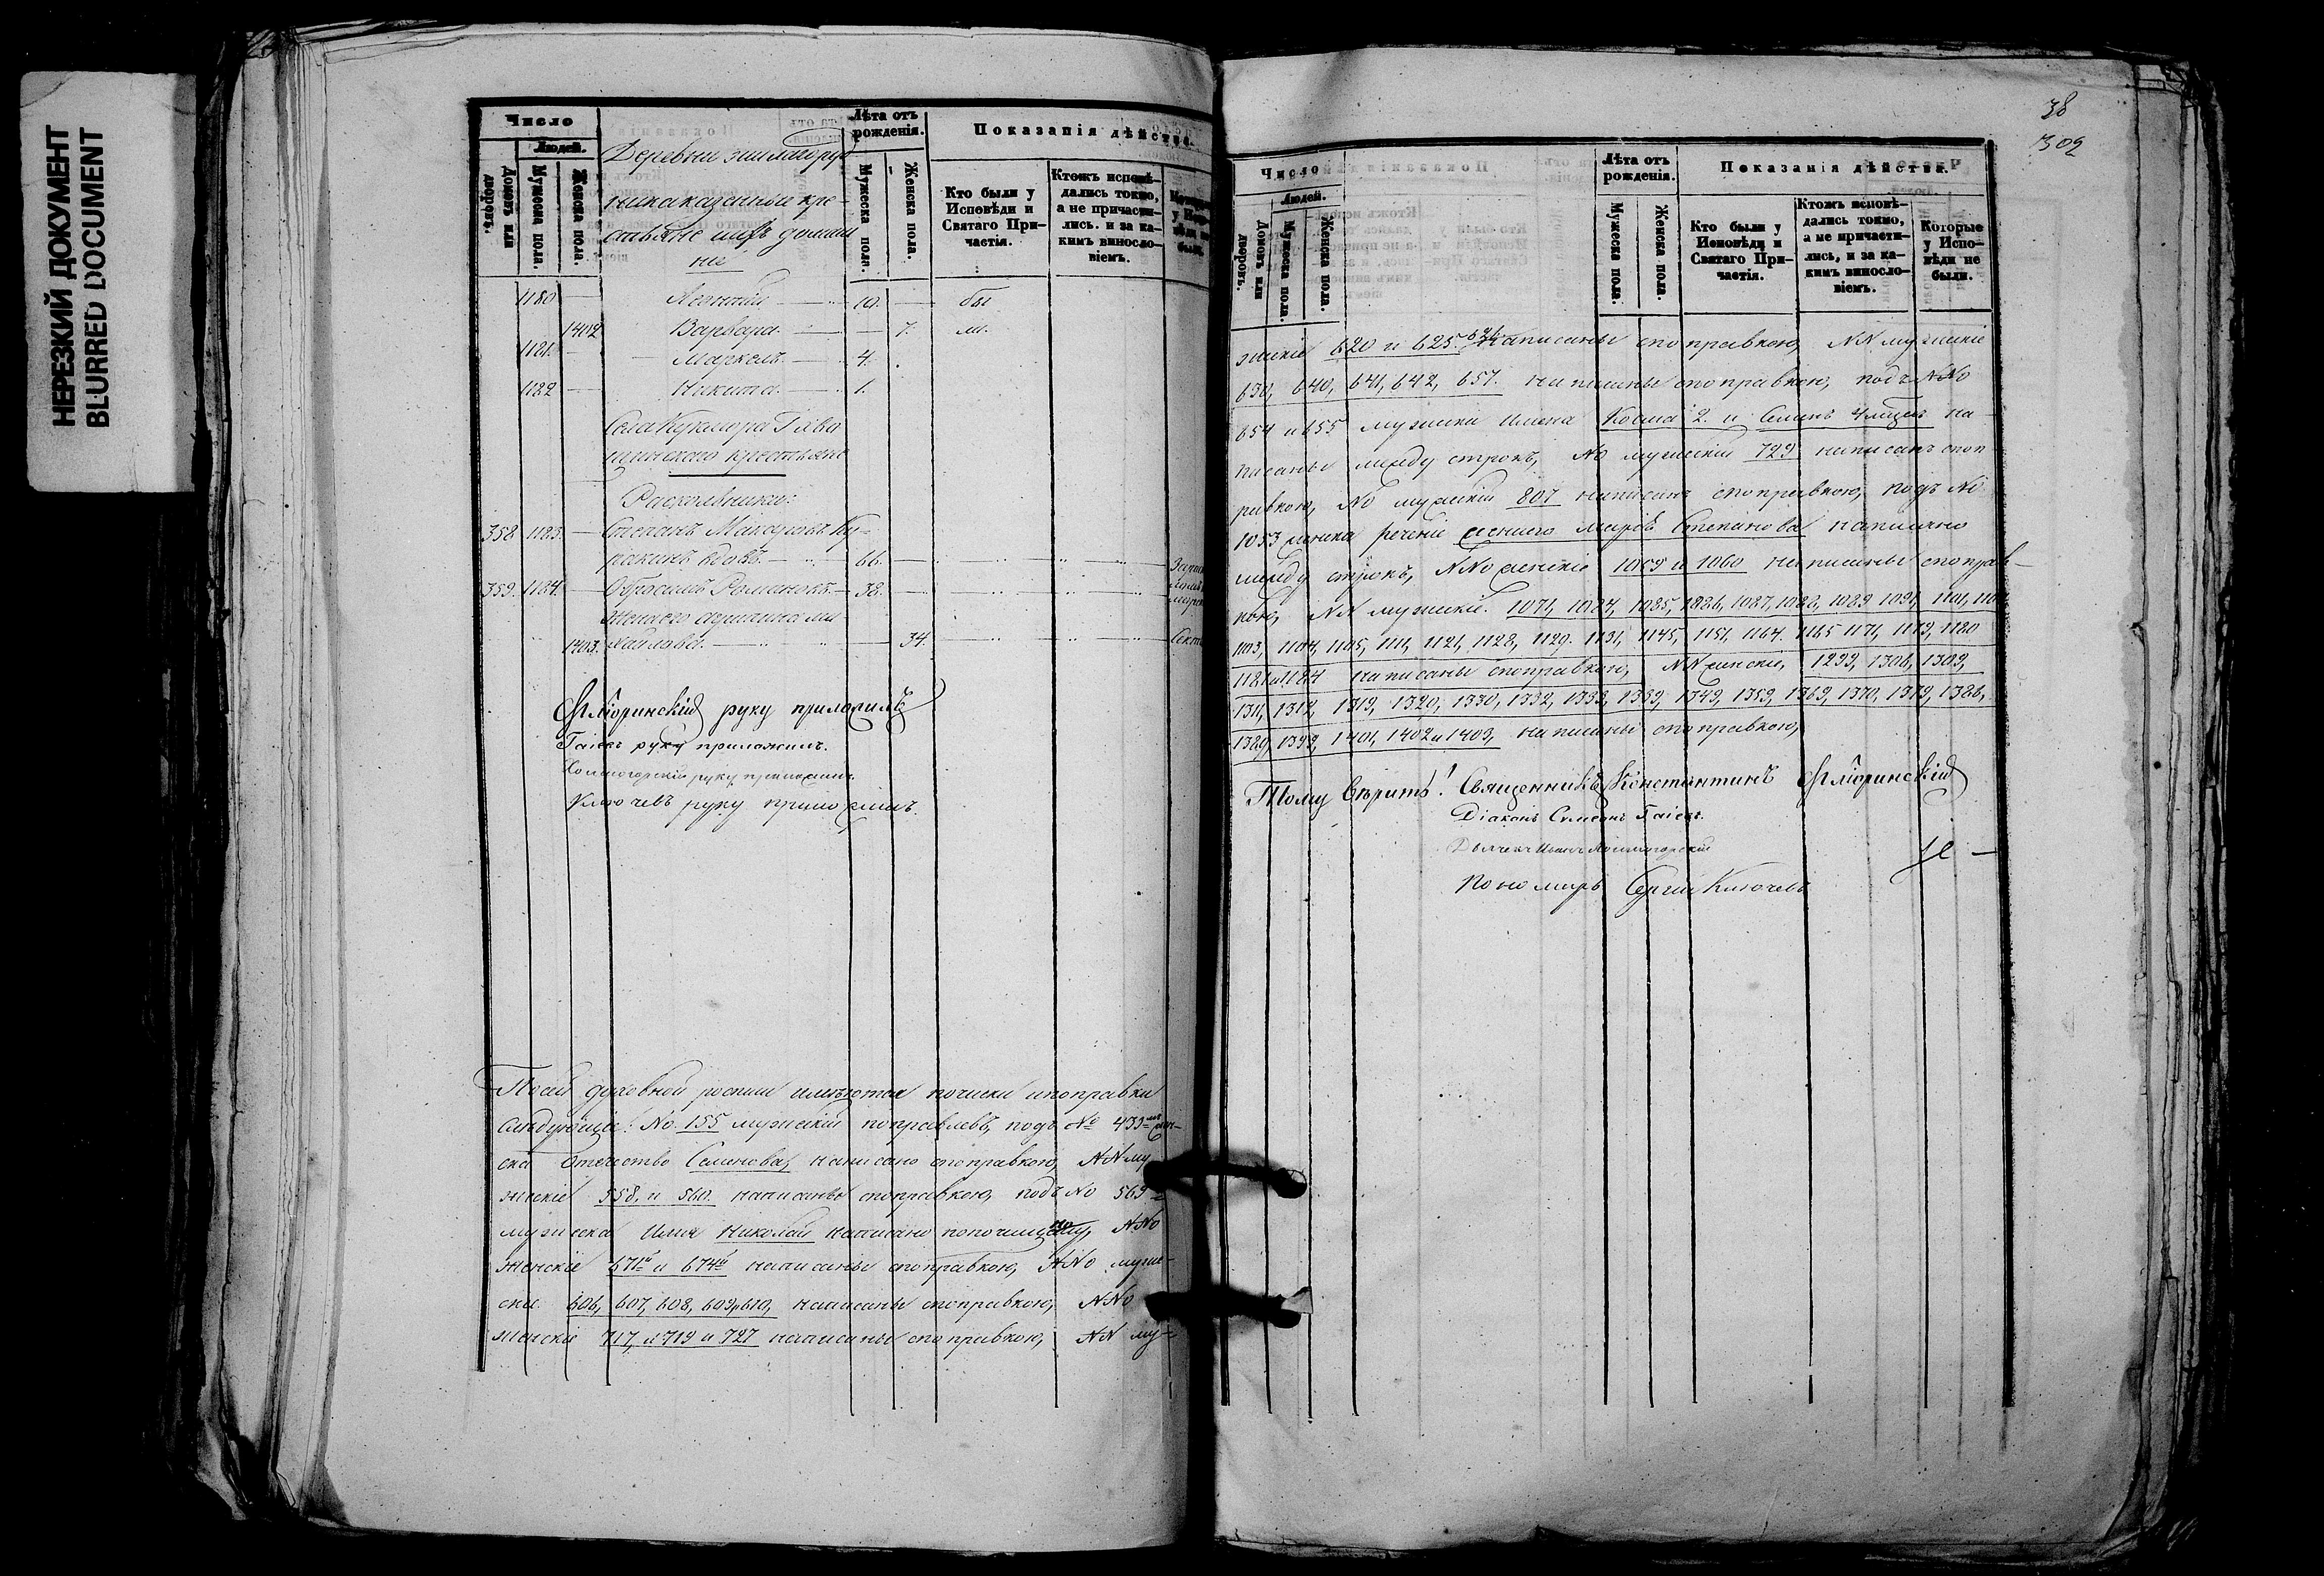 НЕРЕЗКИЙ ДОКУМЕНТ
BLURRED DOCUMENT
Число
Людей.
Домовъ или дворовъ.
Мужеска пола.
Женска пола.
Деревни
казенный кре-
стьяне
Лѣта отъ рожденія.
Мужеска пола.
Женска пола.
Показанія дѣйства.
Кто были у Исповѣди и Святаго При-частія.
Ктожъ исповѣ-дались токмо, а не причасти-лись. и за ка-кимъ винословіемъ.
1180 — 10. — бы
1402 Варвара. — 7. ли.
1181 — 4.
1182 — Никита. — 1.
Села Кукмора
крестьяне
Раскольники:
358 1183. — Степанъ Ку-
ракинъ вдовъ. — 66.
359. 1184. — Романовъ. — 38.
Жена его
1403. хайлова. — 34.
Флоринскій руку приложилъ
Гаіевъ руку приложилъ.
Холмогорскій руку приложилъ.
Ключевъ руку приложилъ.
По сей духовной росписи имѣются почистки и поправки
слѣдующіе: No. 155 мужескій поправлевъ, подъ No 433 жен-
ска отечество Семенова, написано споправкою, NN му
жескіе 558. и 560. написаны споправкою, подъ No 569
мужеска имя Николай написано попочищенному, NNo
женскіе 671й и 674й написаны споправкою, NNo муже-
ски 606, 607, 608, 609, и 610, написаны споправкою, NNo
женскіе 717, и 719 и 727 написаны споправкою, NN му-
38
309
Число
Людей.
Домовъ или дворовъ.
Мужеска пола.
Женска пола.
Лѣта отъ рожденія.
Мужеска пола.
Женска пола.
Показанія дѣйства.
Кто были у Исповѣди и Святаго При-частія.
Ктожъ исповѣ-дались токмо, а не причасти-лись, и за ка-кимъ винословіемъ.
Которые у Испо-вѣди не были.
жескіе 620 и 625. написаны споправкою, NN мужескіе
630, 640, 641, 642, 657. написаны споправкою, подъ NNo
654 и 655 мужески имена Косма 2. и Семенъ на-
писаны между строкъ, No мужескій 729 написанъ споп-
равкою, No мужескій 807 написанъ споправкою, подъ No
1053 женска речени Степанова написано
между строкъ, NNo женскіе 1059 и 1060 написаны споправ-
кою, NN мужескіе. 1071, 1084, 1085, 1086, 1087, 1088, 1089 1091, 1101, 1102
1103, 1104, 1105, 1111, 1121, 1128, 1129. 1131, 1145, 1151, 1164. 1165 1171, 1179, 1180
1181 и 1184 написаны споправкою, NN женскіе, 1299, 1306, 1309,
1311, 1317, 1319, 1320, 1330, 1332, 1333, 1339, 1349, 1359, 1369, 1370, 1379, 1386,
1389, 1399, 1401, 1402 и 1403, написаны споправкою,
Тому вѣрить! Священникъ Константинъ Флоринскій
Діаконъ Симеонъ Гаіевъ.
Дьячекъ Иванъ Холмогорскій
Пономарь Сергій Ключевъ